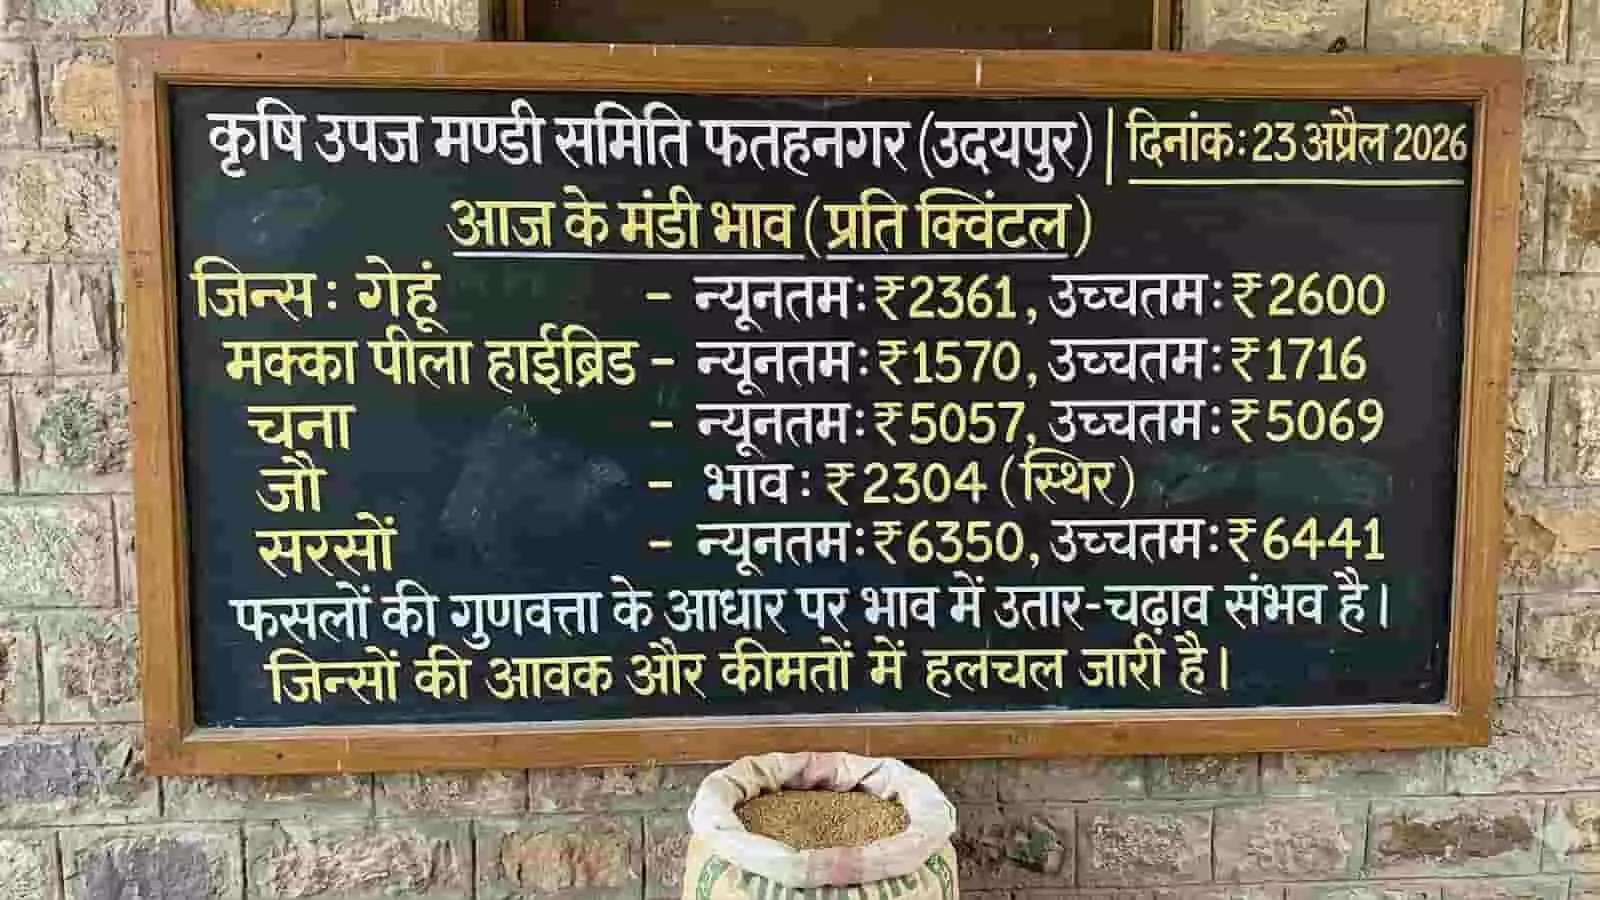 कृषि उपज मण्डी समिति फतहनगर (उदयपुर) | दिनांक: 23 अप्रैल 2026
आज के मंडी भाव (प्रति क्विंटल)
जिन्स: गेहूं - न्यूनतम: ₹2361, उच्चतम: ₹2600
मक्का पीला हाईब्रिड - न्यूनतम: ₹1570, उच्चतम: ₹1716
चना - न्यूनतम: ₹5057, उच्चतम: ₹5069
जौ - भाव: ₹2304 (स्थिर)
सरसों - न्यूनतम: ₹6350, उच्चतम: ₹6441
फसलों की गुणवत्ता के आधार पर भाव में उतार-चढ़ाव संभव है।
जिन्सों की आवक और कीमतों में हलचल जारी है।